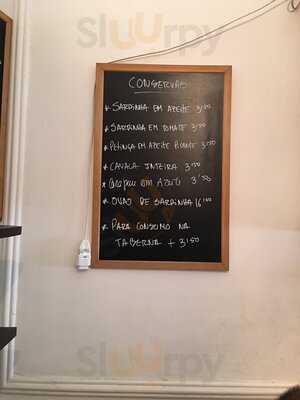 Sluurpy
CONSERVAS
* SARDINHA EM AZEITE 3,50
* SARDINHA EM TOMATE 3,50
* PETINGA EM AZEITE PICANTE 3,50
* CAVALA INTEIRA 3,50
* EM AZEITE 3,50
* OVAS DE SARDINHA 16,00
* PARA CONSUMO NA
TABERNA + 3,50
Sluurpy